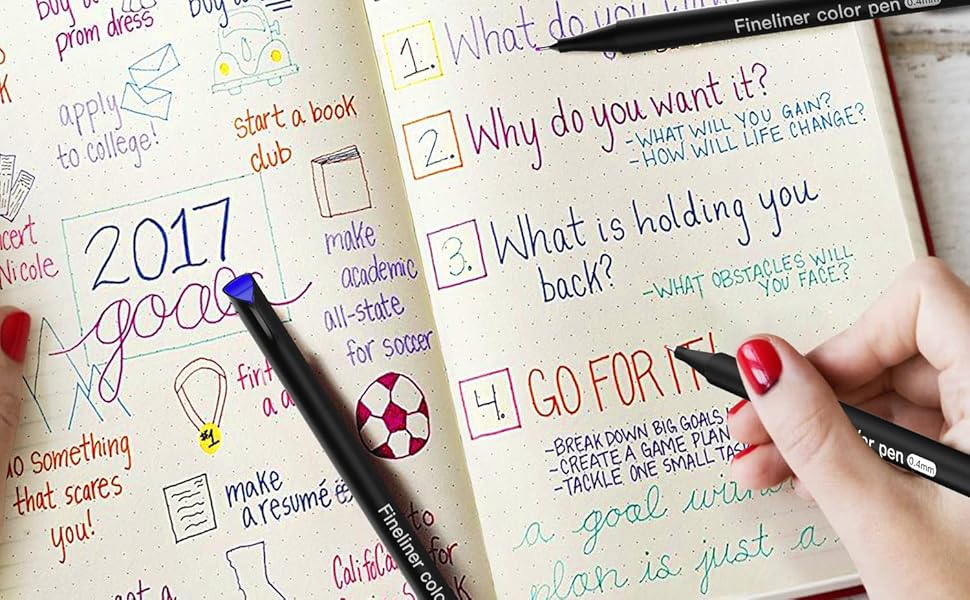 prom dress
apply
to college!
start a book
club
2017
goals
make
academic
all-state
for soccer
#1
do something
that scares
you!
make
a resumé
to
for
1. What do you
2. Why do you want it?
-WHAT WILL YOU GAIN?
-HOW WILL LIFE CHANGE?
3. What is holding you
back?
-WHAT OBSTACLES WILL
YOU FACE?
4. GO FOR IT!
-BREAK DOWN BIG GOALS
-CREATE A GAME PLAN
-TACKLE ONE SMALL
a goal
plan is just a
Fineliner color pen 0.4mm
Fineliner color
color pen 0.4mm